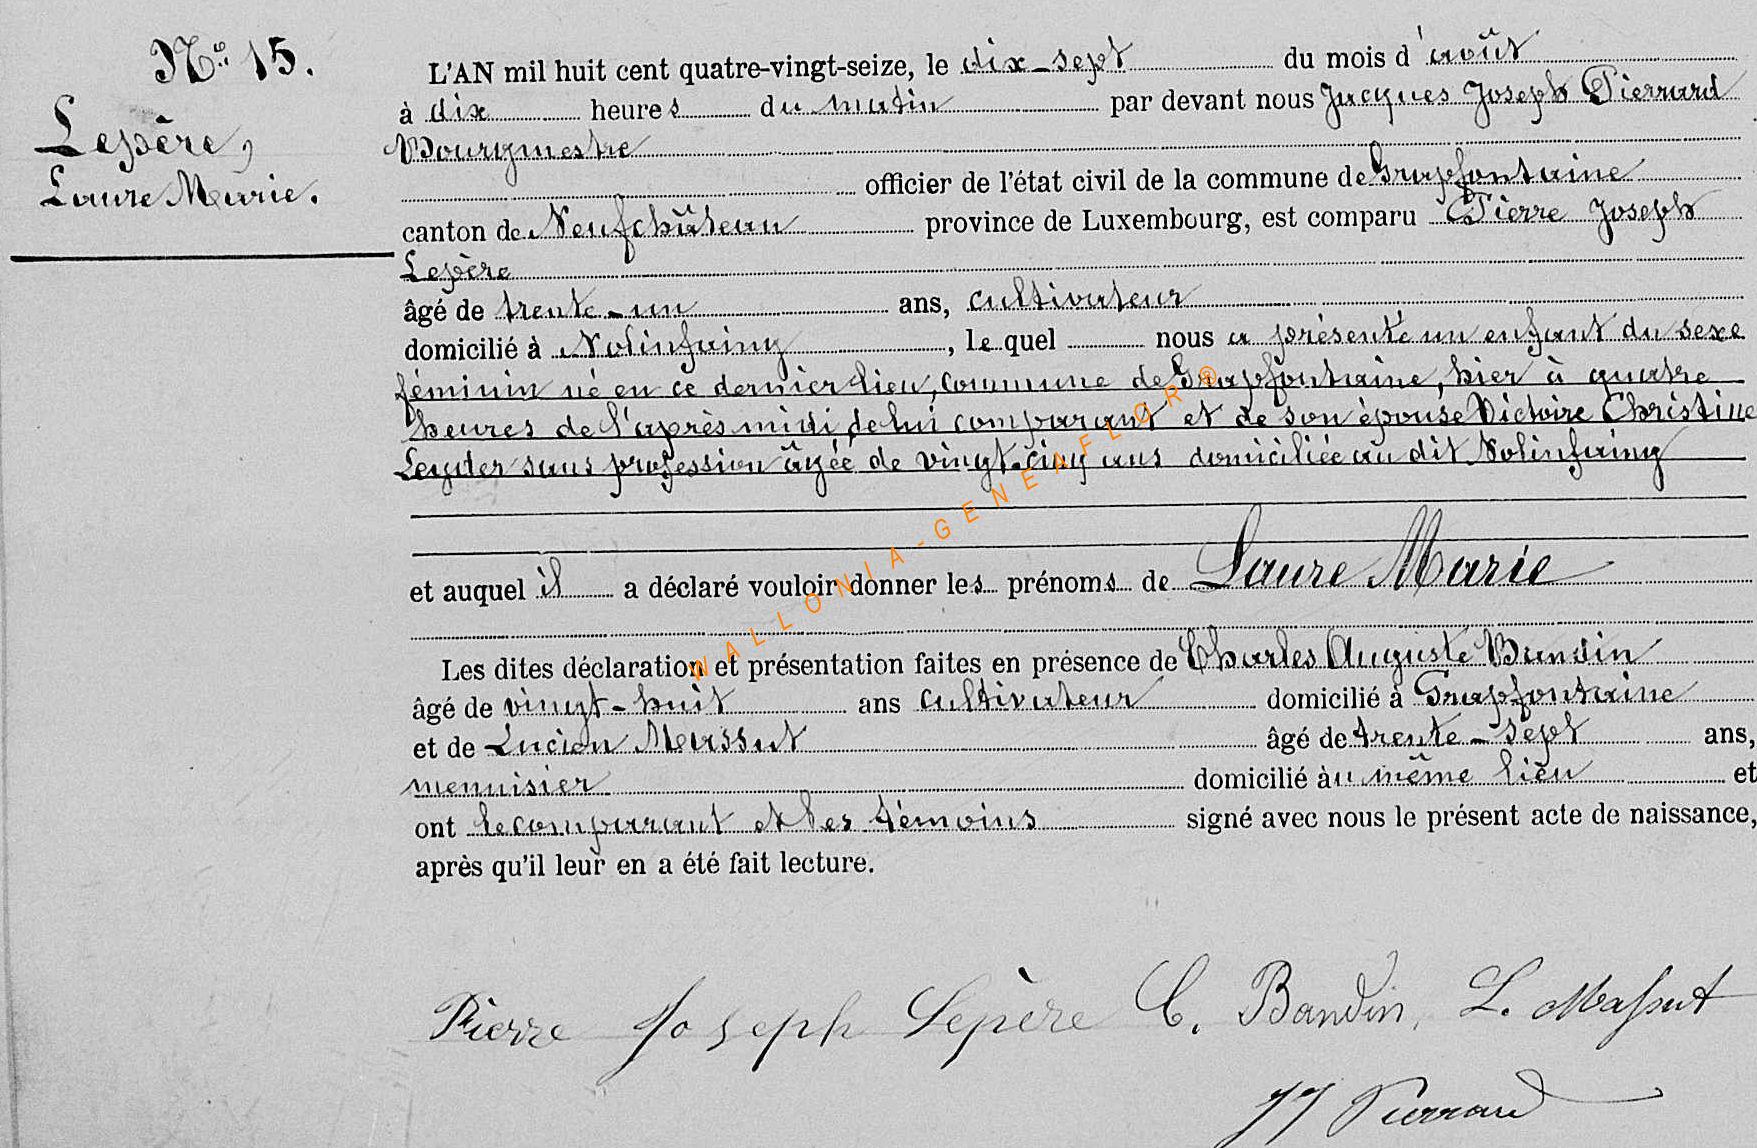 No 15.
Lepère,
Laure Marie.
L'AN mil huit cent quatre-vingt-seize, le dix-sept du mois d'août
à dix heures du matin par devant nous Jacques Joseph Pierrard
Bourgmestre
officier de l'état civil de la commune de Grapfontaine
canton de Neufchâteau province de Luxembourg, est comparu Pierre Joseph
Lepère
âgé de trente-un ans, cultivateur
domicilié à Nolinfaing, lequel nous a présenté un enfant du sexe
féminin né en ce dernier lieu, commune de Grapfontaine, hier à quatre
heures de l'après midi, de lui comparant et de son épouse Victoire Christine
sans profession âgée de vingt-cinq ans domiciliée au dit Nolinfaing
et auquel il a déclaré vouloir donner les prénoms de Laure Marie
Les dites déclaration et présentation faites en présence de Charles Auguste Bandin
âgé de vingt-huit ans cultivateur domicilié à Grapfontaine
et de Lucien Massut âgé de trente-sept ans,
menuisier domicilié au même lieu et
ont le comparant et les témoins signé avec nous le présent acte de naissance,
après qu'il leur en a été fait lecture.
Pierre Joseph Lepère C. Bandin, L. Massut
JJ Pierrard
WALLONIA-GENEAFLOR®